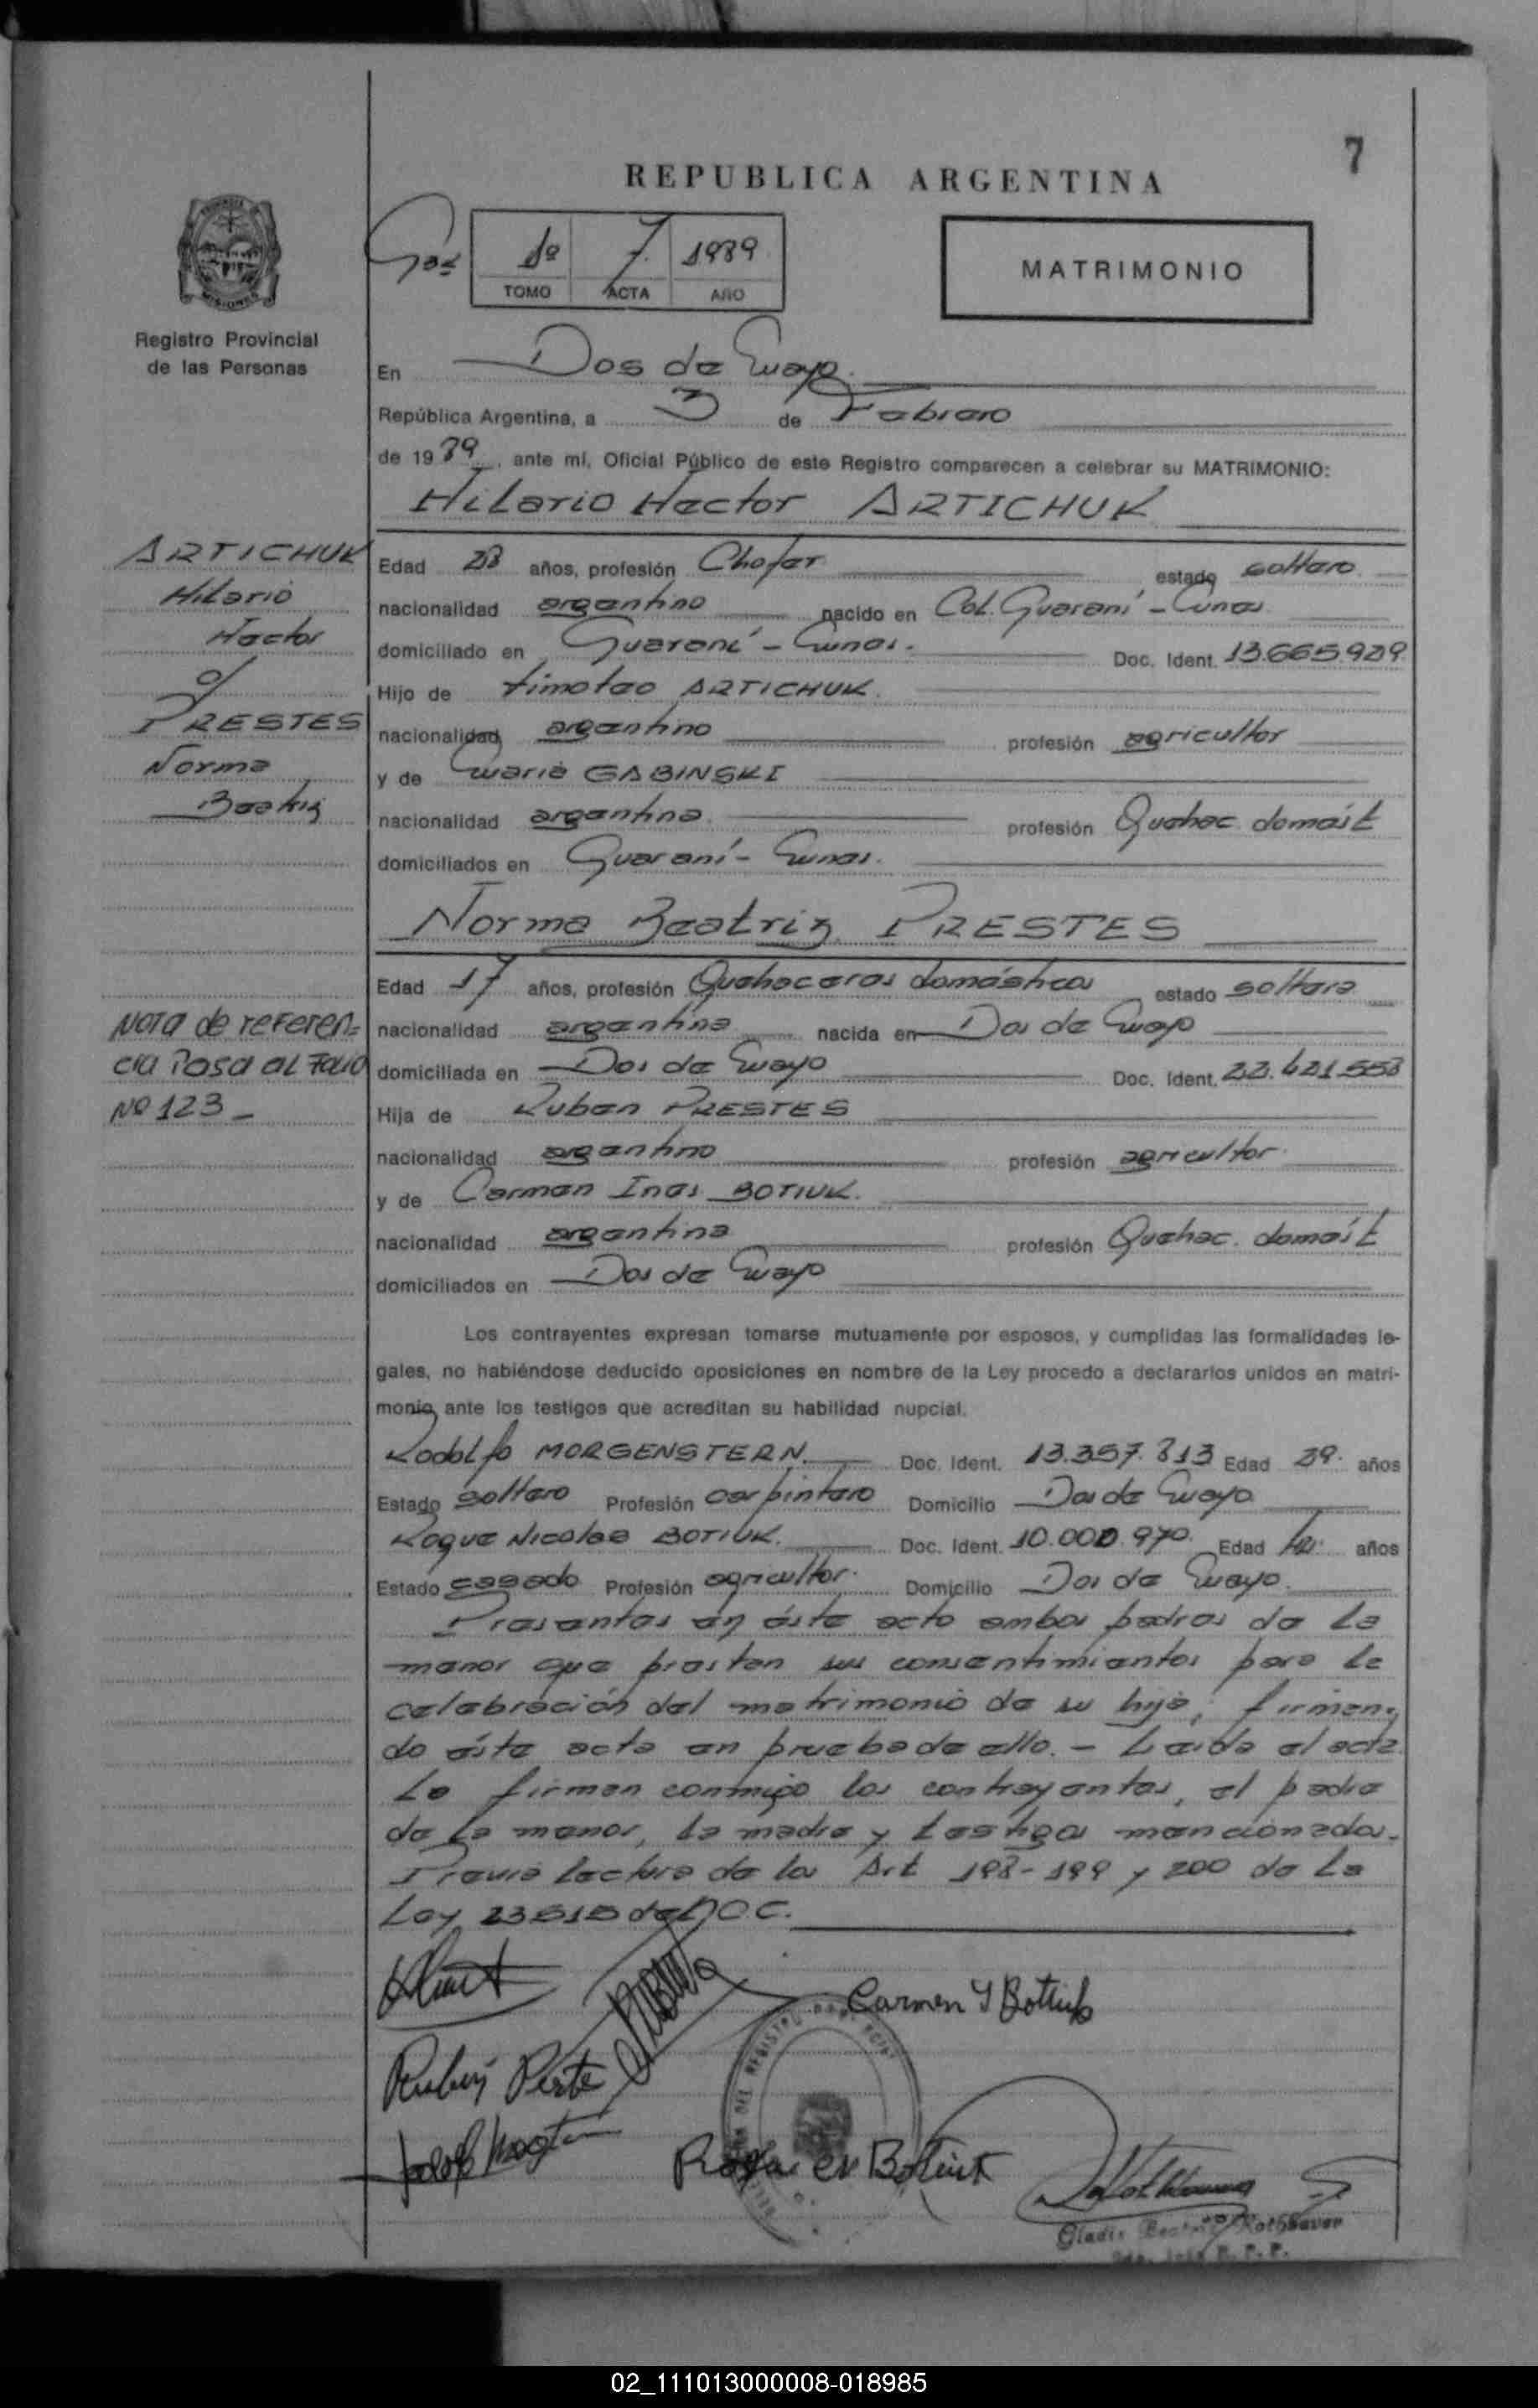 7
REPUBLICA ARGENTINA
1º 7. 1989
TOMO ACTA AÑO
MATRIMONIO
PROVINCIA
MISIONES
Registro Provincial
de las Personas
En Dos de Mayo.
República Argentina, a 3 de Febrero
de 1989, ante mí, Oficial Público de este Registro comparecen a celebrar su MATRIMONIO:
Hilario Hector ARTICHUK
ARTICHUK
Hilario
Hector
c/
PRESTES
Norma
Beatriz
Edad 28 años, profesión Chofer estado soltero
nacionalidad argentino nacido en Col. Guaraní -
domiciliado en Guaraní - Doc. Ident. 13.665.989
Hijo de Timoteo ARTICHUK.
nacionalidad argentino profesión agricultor
y de Maria GABINSKI
nacionalidad argentina profesión Quehac. domést
domiciliados en Guaraní -
Norma Beatriz PRESTES
Edad 17 años, profesión Quehaceres domésticos estado soltera
nacionalidad argentina nacida en Dos de Mayo
domiciliada en Dos de Mayo Doc. Ident. 22.421.558
Hija de Ruben PRESTES
nacionalidad argentino profesión agricultor
y de Carmen Ines BOTIUK.
nacionalidad argentina profesión Quehac. domést
domiciliados en Dos de Mayo
Nota de referen-
cia Pasa al Folio
Nº 123 -
Los contrayentes expresan tomarse mutuamente por esposos, y cumplidas las formalidades le-
gales, no habiéndose deducido oposiciones en nombre de la Ley procedo a declararlos unidos en matri-
monio ante los testigos que acreditan su habilidad nupcial.
Rodolfo MORGENSTERN. Doc. Ident. 13.357.813 Edad 29. años
Estado soltero Profesión carpintero Domicilio Dos de Mayo
Roque Nicolas BOTIUK. Doc. Ident. 10.000.970. Edad años
Estado casado Profesión agricultor. Domicilio Dos de Mayo.
Presentes en éste acto ambos padres de la
menor que prestan sus consentimientos para la
celebración del matrimonio de su hija, firman-
do ésta acta en prueba de ello. - Leída el acta
la firman conmigo los contrayentes, el padre
de la menor, la madre y testigos mencionados.
Previa lectura de los Art 198-199 y 200 de la
Ley 23515 del C.C.
Carmen I Botiuk
Ruben Preste
Roque N Botiuk
Gladis Beatriz Rothbauer
R. P. P.
02_111013000008-018985